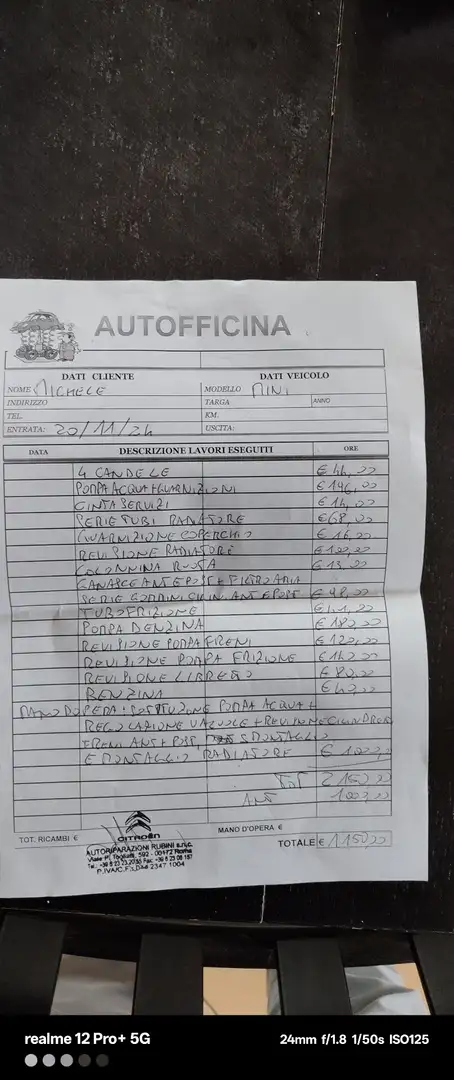 AUTOFFICINA
DATI CLIENTE DATI VEICOLO
NOME MICHELE MODELLO MINI
INDIRIZZO TARGA ANNO
TEL. KM.
ENTRATA: 20/11/24 USCITA:
DATA DESCRIZIONE LAVORI ESEGUITI ORE
4 CANDELE € 44,00
POMPA ACQUA + GUARNIZIONI € 196,00
CINTA SERVIZI € 14,00
SERIE TUBI RADIATORE € 68,00
GUARNIZIONE COPERCHIO € 16,00
REVISIONE RADIATORE € 100,00
COLONNINA RUOTA € 13,00
GANASCE ANT E POST + FILTRO ARIA
SERIE GOMMINI CILIN. ANT E POST € 98,00
TUBO FRIZIONE
POMPA BENZINA € 182,00
REVISIONE POMPA FRENI € 120,00
REVISIONE POMPA FRIZIONE
REVISIONE LIBRETTO € 80,00
BENZINA
MANO DOPERA: SOSTITUZIONE POMPA ACQUA +
REGOLAZIONE VALVOLE + REVISIONE CILINDRETTI
FRENI ANT + POST, SMONTAGGIO
E MONTAGGIO RADIATORE € 1000,00
TOT 2150,00
ANT 1000,00
TOT. RICAMBI € MANO D'OPERA €
TOTALE € 1150,00
CITROËN
AUTORIPARAZIONI RUBINI s.n.c.
Viale P. Togliatti, 592 - 00172 Roma
P.IVA/C.F.
realme 12 Pro+ 5G 24mm f/1.8 1/50s ISO125